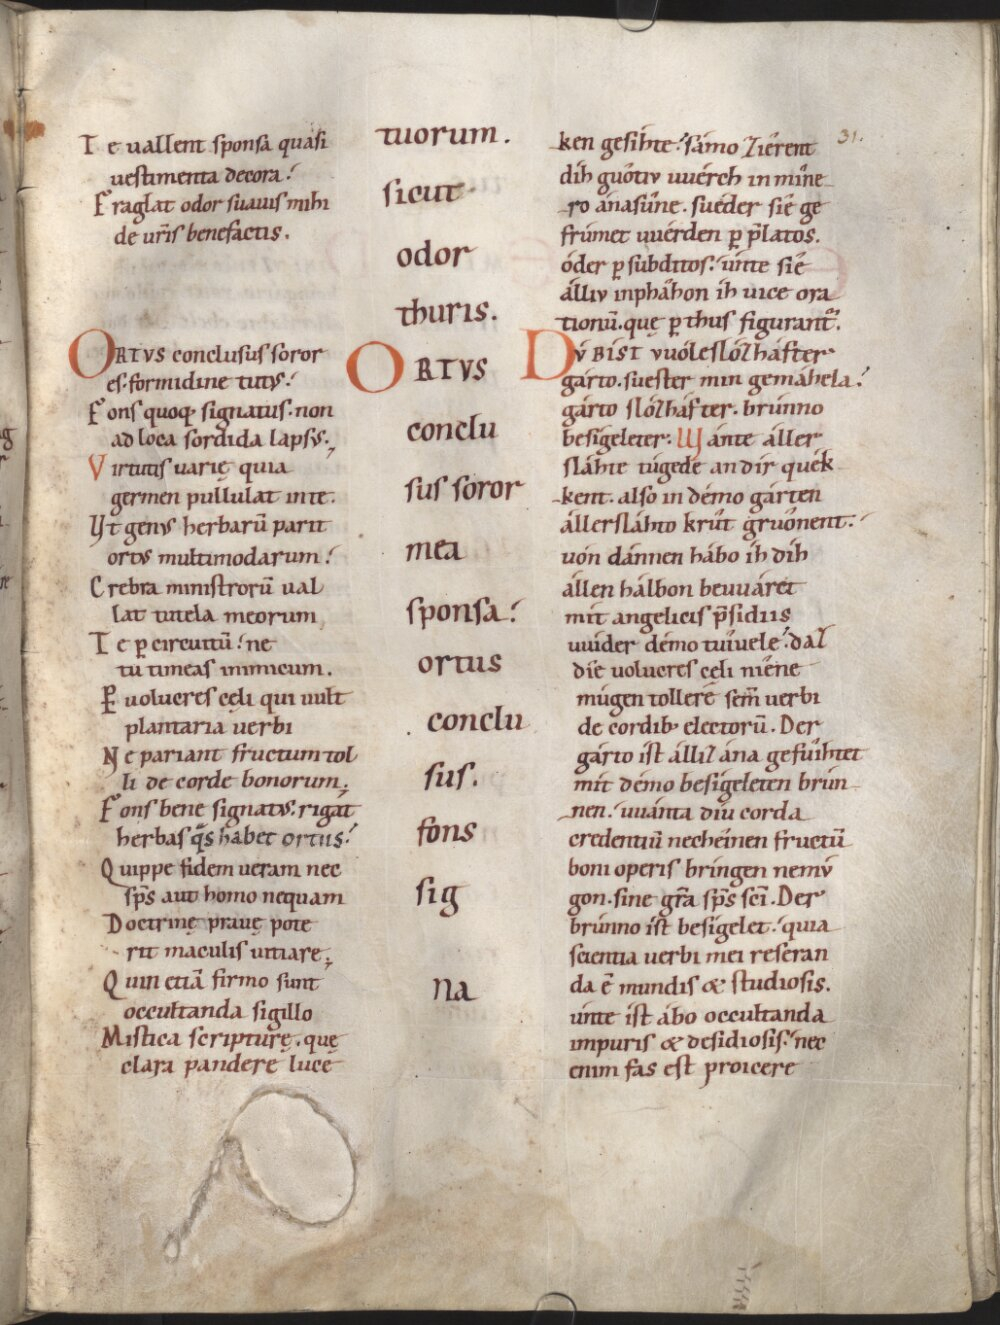 Te vallent sponsa quasi
vestimenta decora.
Fraglat odor suauis mihi
de ur̄is benefactis.
ORTVS conclusus soror
es. formidine tutus.
Fons quoq; signatus. non
ad loca sordida lapsus.
Virtutis varię quia
germen pullulat inte.
Vt genus herbarū parit
ortus multimodarum.
Crebra ministrorū val
lat tutela meorum
Te ꝑ circuitū. ne
tu timeas inimicum.
Ꝑ uolucres cęli qui uult
plantaria verbi
Ne pariant fructum tol
li de corde bonorum.
Fons bene signatus. rigat
herbas q̄s habet ortus.
Quippe fidem veram nec
sp̄s aut homo nequam
Doctrinę pravę pote
rit maculis uitiare.
Quin etiā firmo sunt
occultanda sigillo
Mistica scripturę. quę
clara pandere luce
tuorum.
sicut
odor
thuris.
ORTVS
conclu
sus soror
mea
sponsa.
ortus
conclu
sus.
fons
sig
na
31.
ken gesihte. sámo zîerent
dih gûotiv vvérch in mîne
ro ánasûne. suéder sîe ge
frúmet vvérden ꝑ p̄latos.
óder ꝑ subditos. únte sîe
álliv inpháhon ih vice ora
tionū. quę ꝑ thus figurant᷑.
DV BIST vvóleslózháfter
gárto. suester min gemáhela.
gárto slózháfter. brúnno
besígeleter. Wánte áller
sláhte túgede an dir quék
kent. also in démo gárten
állersláhto krût grûonent.
vón dánnen hábo ih dih
állen hálbon bevváret
mit angelicis p̄sidiis
vvider démo tîuvele. daz
dîe volucres cęli nîene
múgen tollere sem̄ verbi
de cordib; electorū. Der
gárto ist álliz ána gefûihtet
mit démo besígeleten brún
nen. vvánta dîu corda
credentiū nechéinen fructū
boni operis bríngen nemv́
gon. sine gr̄a sp̄s sc̄i. Der
brúnno ist besígelet. quia
scientia verbi mei reseran
da ē mundis & studiosis.
únte ist ábo occultanda
impuris & desidiosis. nec
enim fas est proicere